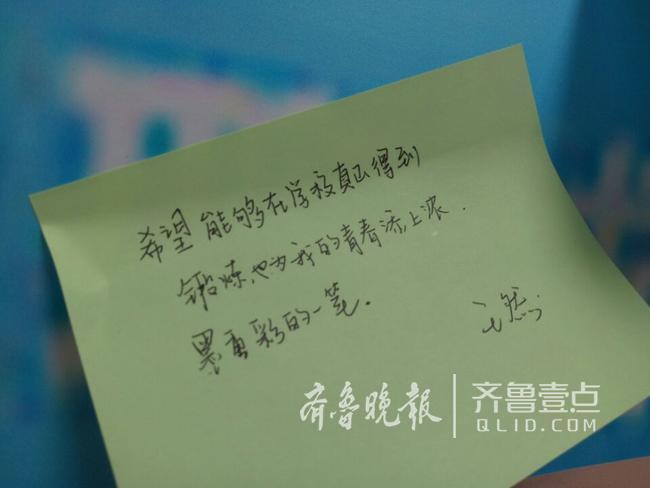 希望能够在学校真正得到
锻炼,也为我的青春添上浓
墨重彩的一笔.
然
齐鲁晚报
齐鲁壹点
QLID.COM